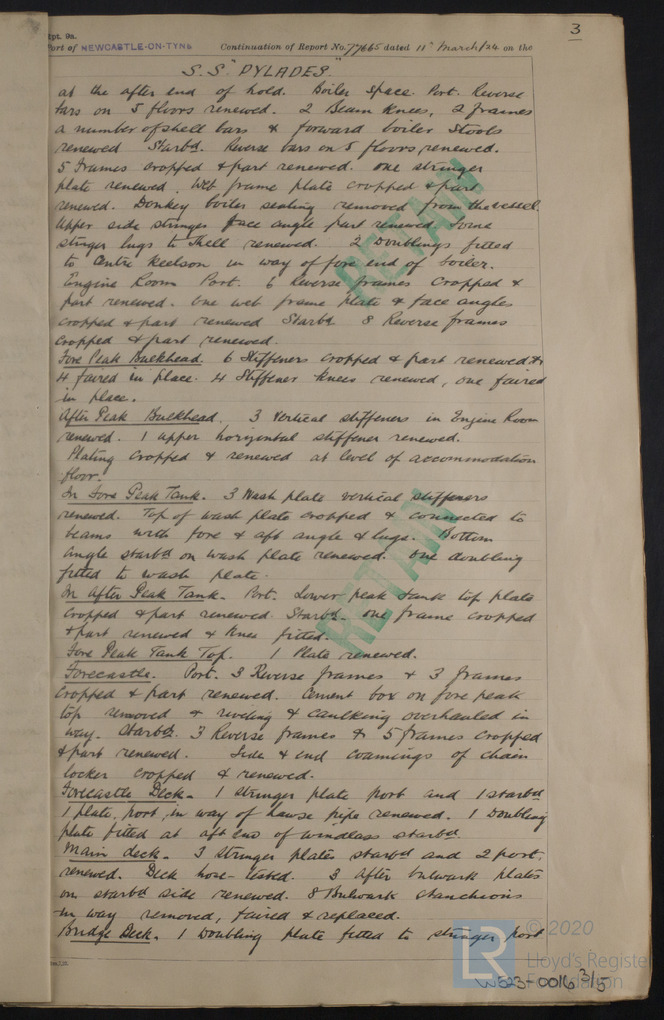 3
Rpt. 9a.
Port of NEWCASTLE-ON-TYNE Continuation of Report No. 77665 dated 11th March/24 on the
S.S. "PYLADES."
at the after end of hold. Boiler Space. Port. Reverse
bars on 5 floors renewed. 2 Beam knees, 2 frames
a number of shell bars & forward boiler stools
renewed Starbd. Reverse bars on 5 floors, renewed.
5 frames cropped & part renewed. one stringer
plate renewed. Web frame plate cropped & part
renewed. Donkey boiler seating removed from the vessel.
Upper side stringer face angle part renewed. Some
stringer lugs to shell renewed. 2 Doublings fitted
to Centre Keelson in way of fore end of boiler.
Engine Room Port. 6 Reverse frames cropped &
part renewed. One web frame plate & face angles
cropped & part renewed Starbd. 8 Reverse frames
cropped & part renewed.
Fore Peak Bulkhead. 6 Stiffeners cropped & part renewed &
4 faired in place. 4 Stiffener knees renewed, one faired
in place.
After Peak Bulkhead. 3 Vertical stiffeners in Engine Room
renewed. 1 upper horizontal stiffener renewed.
Plating cropped & renewed at level of accommodation
floor.
In Fore Peak Tank. 3 Wash plate vertical stiffeners
renewed. Top of wash plate cropped & connected to
beams with fore & aft angle & lugs. Bottom
angle starbd on wash plate renewed. One doubling
fitted to wash plate.
In After Peak Tank. Port. Lower peak tank top plate
cropped & part renewed. Starbd. one frame cropped
& part renewed & knee fitted.
Fore Peak Tank Top. 1 Plate renewed.
Forecastle. Port. 3 Reverse frames & 3 frames
cropped & part renewed. Cement box on fore peak
top removed & riveting & caulking overhauled in
way. Starbd. 3 Reverse frames & 5 frames cropped
& part renewed. Side & end coamings of chain
locker cropped & renewed.
Forecastle Deck. 1 stringer plate port and 1 starbd
1 plate, port, in way of hawse pipe renewed. 1 Doubling
plate fitted at aft end of windlass starbd.
Main deck. 3 stringer plates starbd and 2 port.
renewed. Deck hose-tested. 3 after bulwark plates
on starbd side renewed. 8 Bulwark stanchions
in way removed, faired & replaced.
Bridge Deck. 1 Doubling plate fitted to stringer port
RETAIN
RETAIN
LR
© 2020
Lloyd's Register
Foundation
W523-0016 3/5